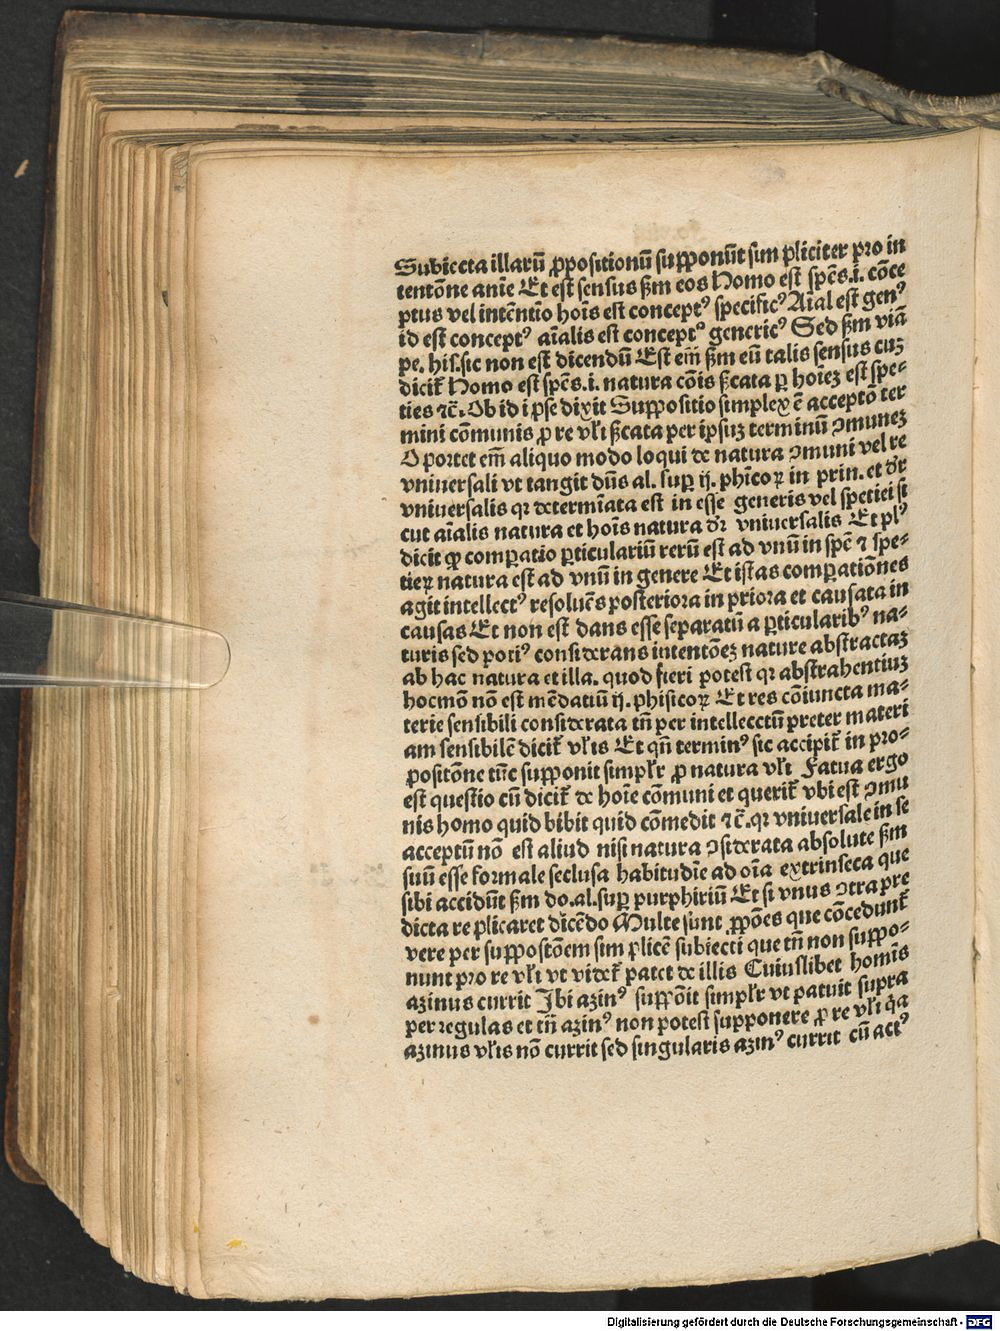 Subiecta illarū ꝓpositionū supponūt sim pliciter pro in
tentōne anīe Et est sensus ẜm eos Homo est spēs.i. cōce
ptus vel intēntio hoīs est conceptꝰ specificꝰ Aīal est genꝰ
id est conceptꝰ aīalis est conceptꝰ genericꝰ Sed ẜm viā
pe. his.sic non est dicendū Est em̄ ẜm eū talis sensus cuȝ
dicit̄ Homo est spēs.i. natura cōis ẜcata ꝑ hoīeȝ est spe⸗
ties ⁊c̄. Ob id i pse dixit Suppositio simplex ē acceptō ter
mini cōmunis ꝓ re vl̄i ẜcata per ipsuȝ terminū ꝯmuneȝ
O portet em̄ aliquo modo loqui de natura ꝯmuni vel re
vniuersali vt tangit dn̄s al. suꝑ ij. phīcoꝝ in prin. et dr̄
vniuersalis qꝛ determīata est in esse generis vel spetiei si
cut aīalis natura et hoīs natura dr̄ vniuersalis Et plꝰ
dicit ꝙ comꝑatio ꝑticulariū rerū est ad vnū in spē ⁊ spe⸗
tieꝝ natura est ad vnū in genere Et istas comꝑatiōnes
agit intellectꝰ resoluēs posteriora in priora et causata in
causas Et non est dans esse separatū a ꝑticularibꝰ na⸗
turis sed potiꝰ considerans intentōeȝ nature abstractaȝ
ab hac natura et illa. quod fieri potest qꝛ abstrahentiuȝ
hocmōi nō est mēdatiū ij. phisicoꝝ Et res cōiuncta ma⸗
terie sensibili considerata tn̄ per intellecctū preter materi
am sensibilē dicit̄ vl̄is Et qn̄ terminꝰ sic accipit̄ in pro⸗
positōne tūc supponit simpl̄r ꝓ natura vl̄i Fatua ergo
est questio cū dicit̄ de hoīe cōmuni et querit̄ vbi est ꝯmu
nis homo quid bibit quid cōmedit ⁊c̄. qꝛ vniuersale in se
acceptū nō est aliud nisi natura ꝯsiderata absolute ẜm
suū esse formale seclusa habitudīe ad oīa extrinseca que
sibi accidūt ẜm do.al.suꝑ purphiriū Et si vnus ꝯtra pre
dicta re plicaret dīcēdo Multe sunt ꝓpōes que cōcedunt̄
vere per suppostōem sim plicē subiecti que tn̄ non suppo⸗
nunt pro re vl̄i vt videt̄ patet de illis Cuiuslibet homīs
aȝinus currit Ibi aȝinꝰ suppōit simpl̄r vt patuit supra
per regulas et tn̄ aȝinꝰ non potest supponere ꝓ re vl̄i qa
aȝinus vl̄is nō currit sed singularis aȝinꝰ currit cū actꝰ
Digitalisierung gefördert durch die Deutsche Forschungsgemeinschaft - DFG